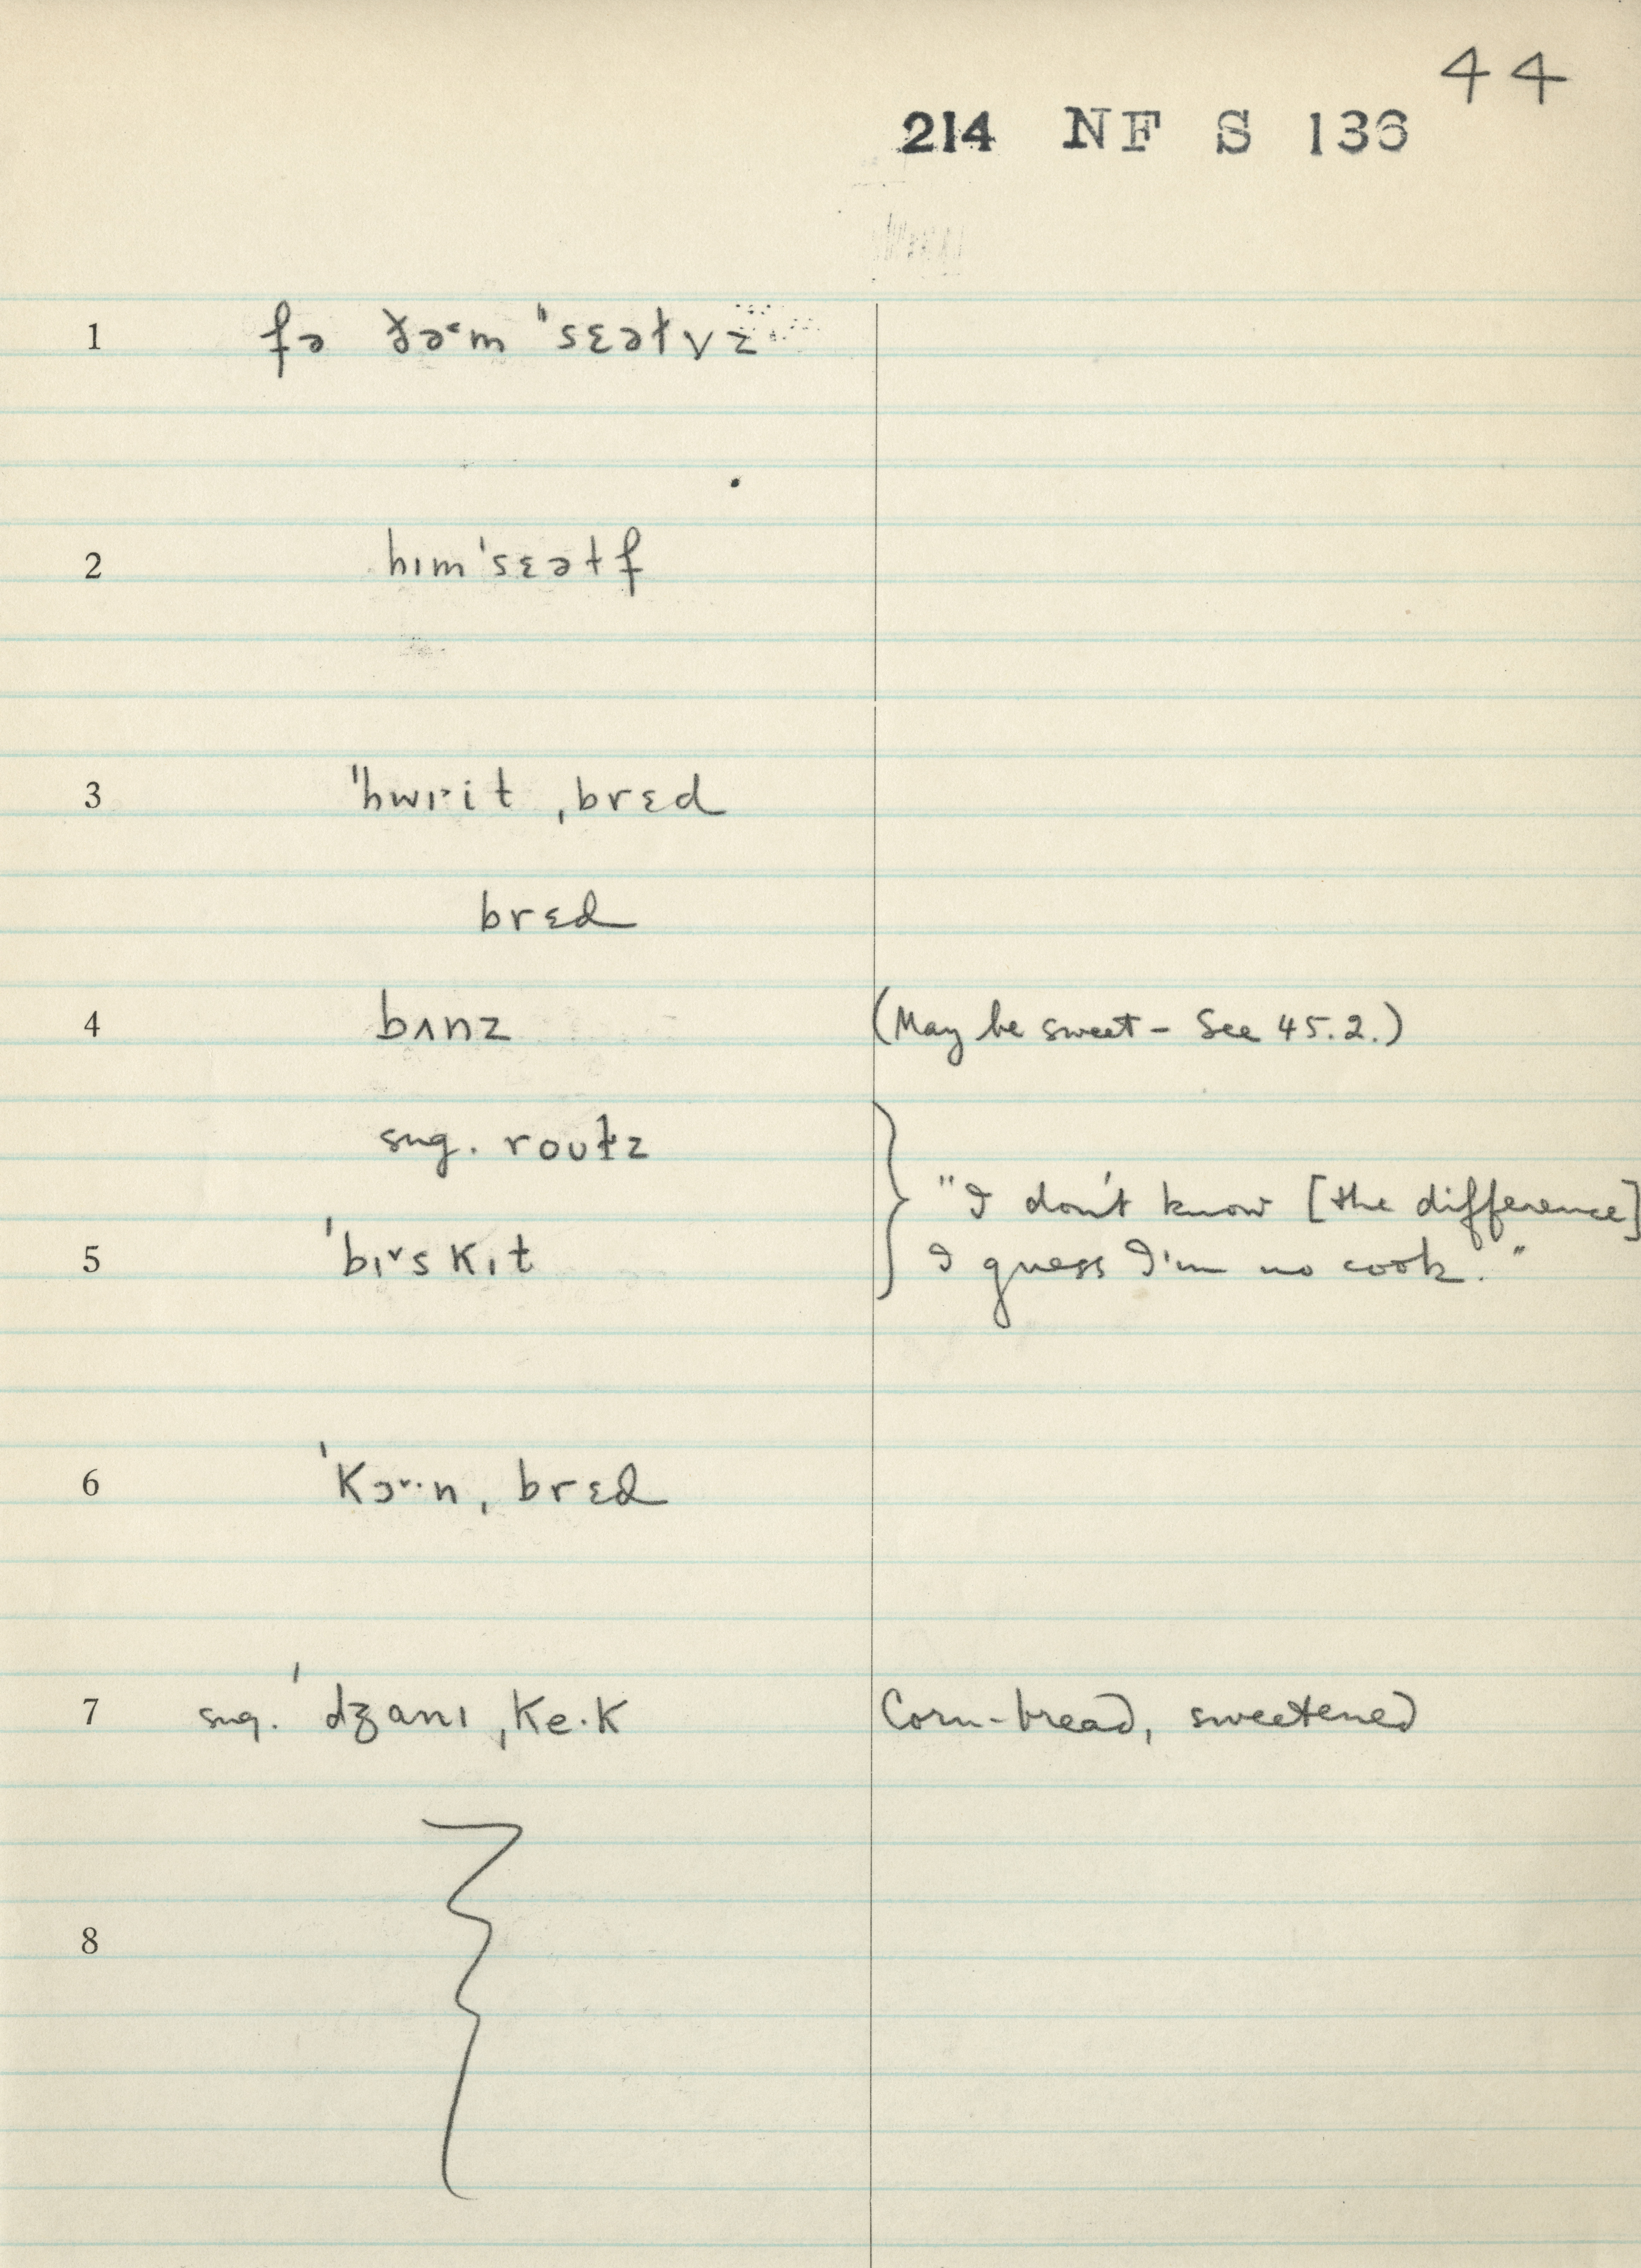 44
214 NF S 136
1 fə ðə˞m ˈˈsɛəɫvz
2 hɪmˈsɛəɫf
3 ˈˈhwɪ˔it ˌbrɛd
brɛd
4 bʌnz (May be sweet – See 45.2.)
sug. rouɫz
"I don't know [the difference]
5 ˈbɪ˅skɪt I guess I'm no cook."
6 ˈkɔ˅·n ˌbrɛd
7 sug. ˈdʒanɪ ˌke·k Corn-bread, sweetened
8